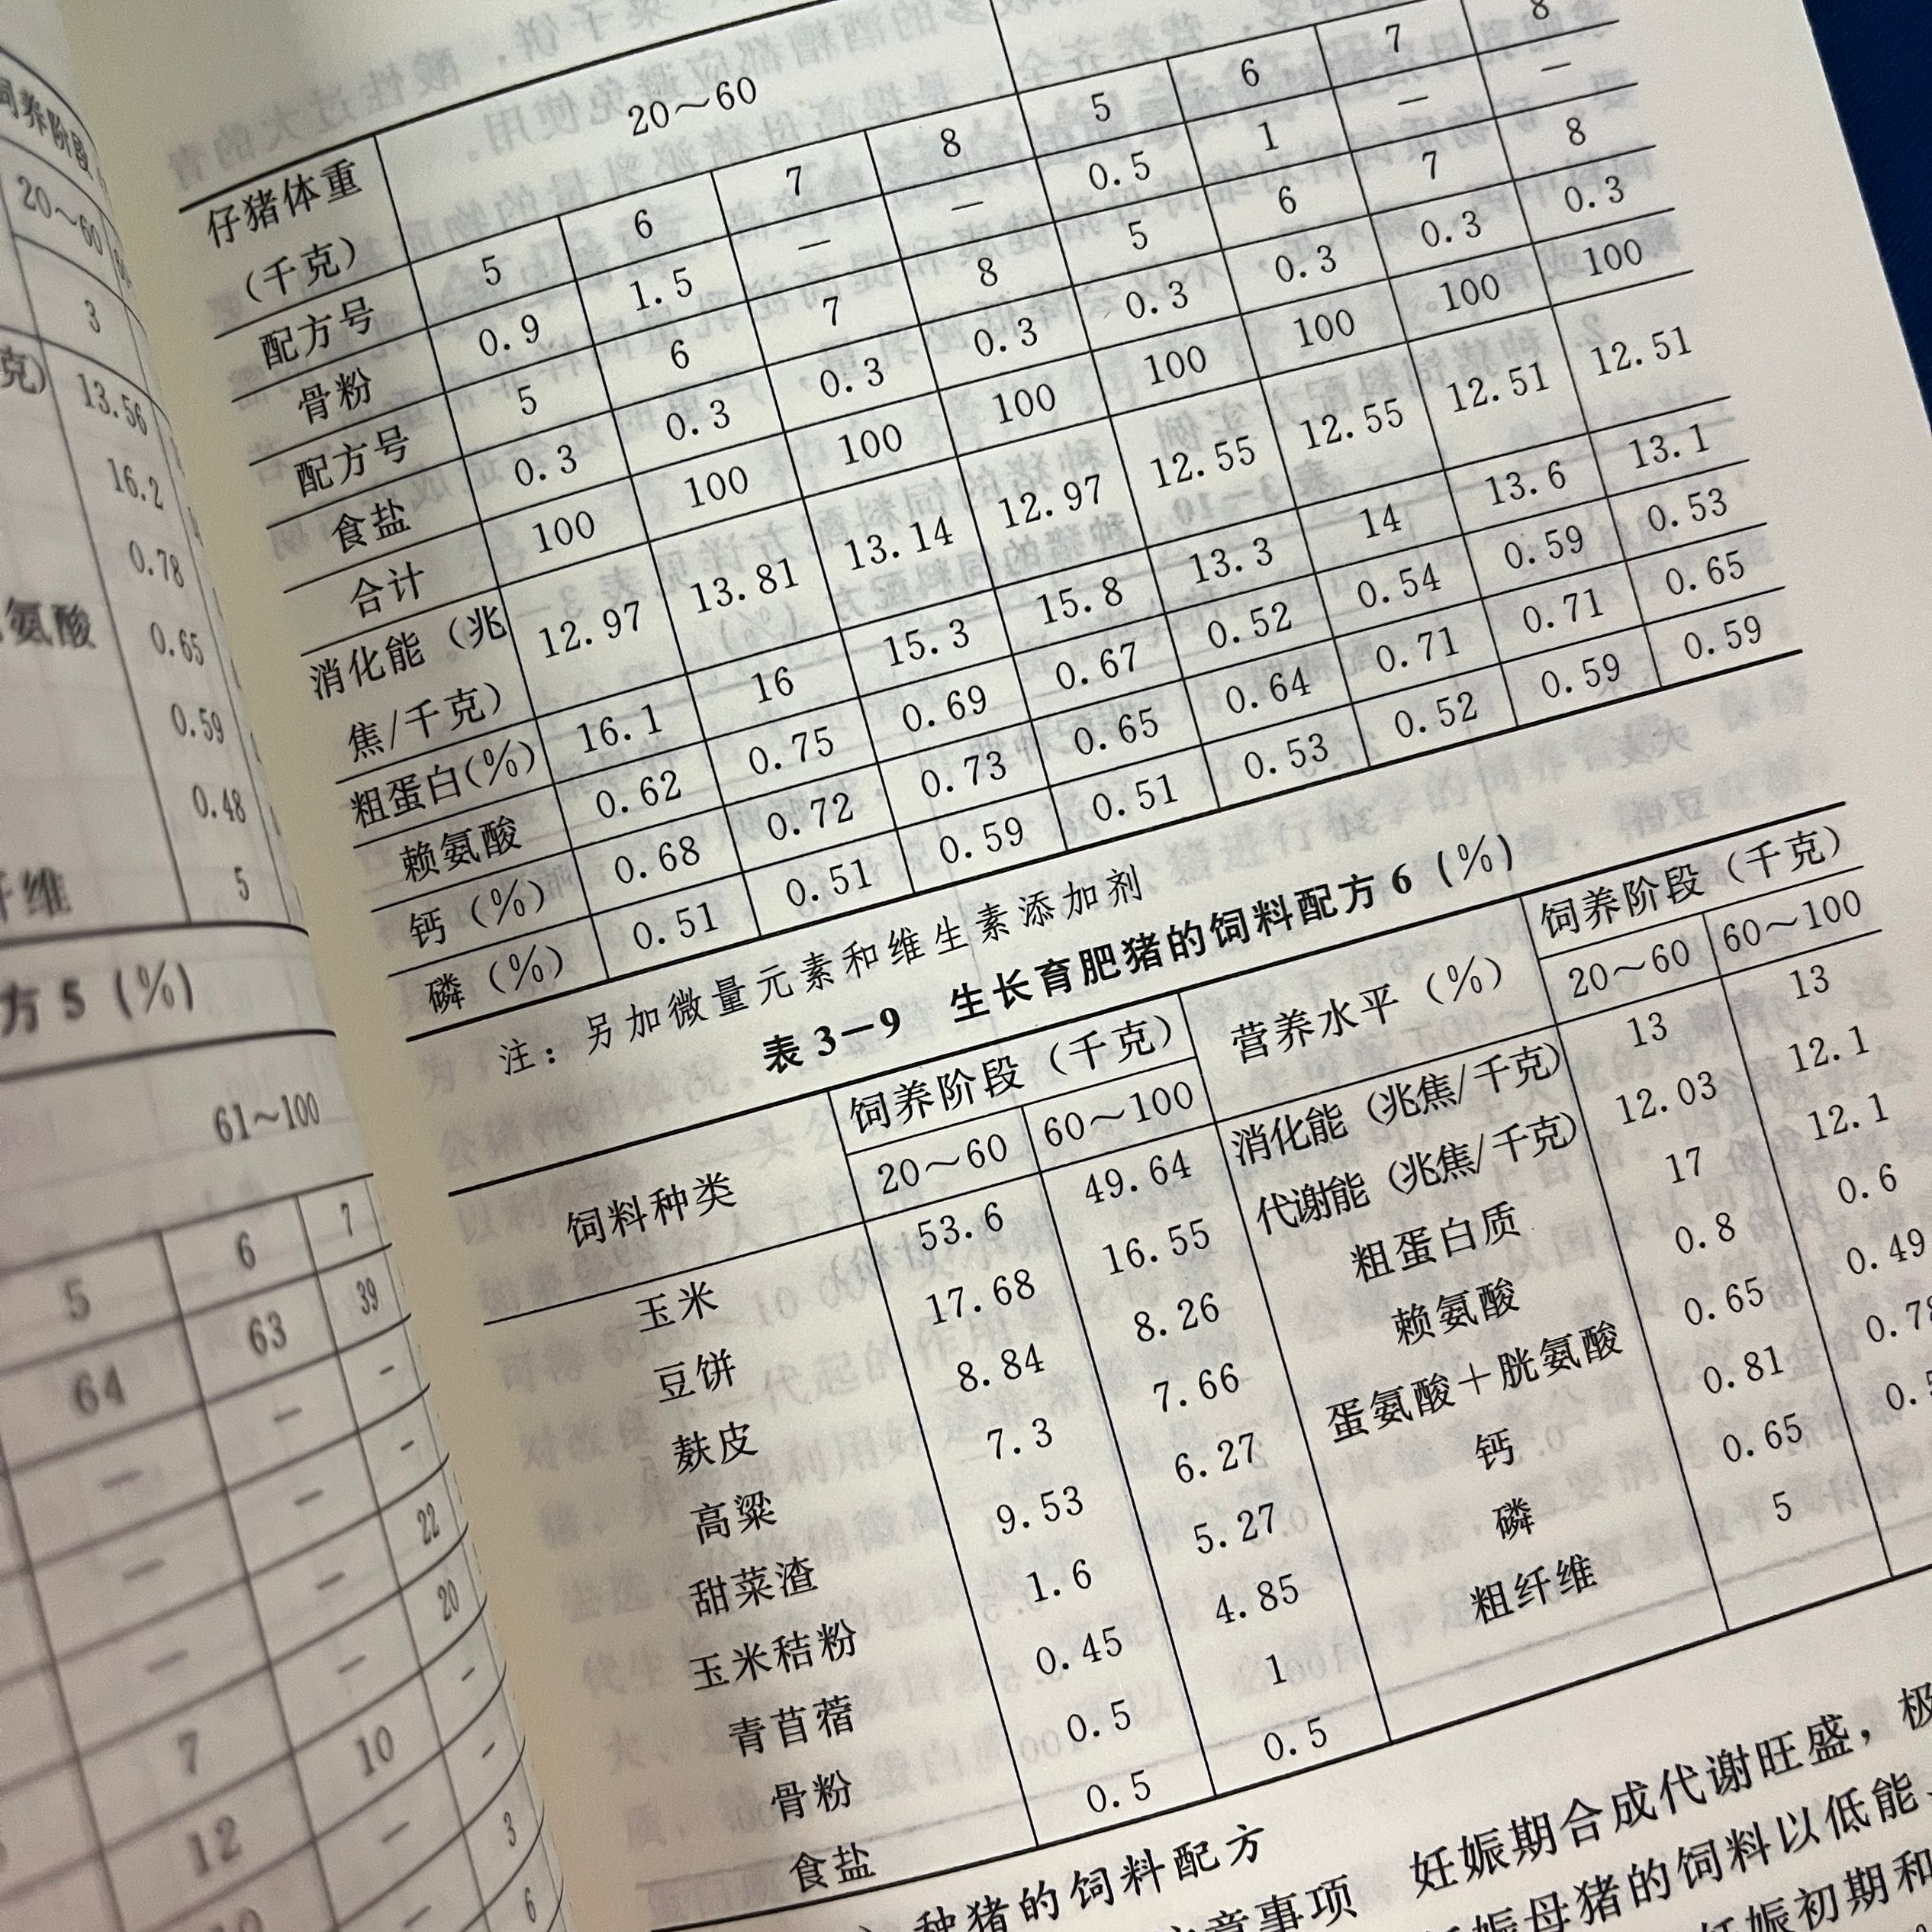 饲养阶段
20～60
3
克) 13.56
16.2
0.78
氨酸 0.65
0.59
0.48
纤维 5
方 5 (%)
61～100
5 6 7
64 63 39
— — —
— — —
— — 22
— — 20
7 10 —
12 — 3
6
仔猪体重 20～60
（千克）
配方号 5 6 7 8 5 6 7 8
骨粉 0.9 1.5 — — 0.5 1 — —
配方号 5 6 7 8 5 6 7 8
食盐 0.3 0.3 0.3 0.3 0.3 0.3 0.3 0.3
合计 100 100 100 100 100 100 100 100
消化能（兆
焦/千克） 12.97 13.81 13.14 12.97 12.55 12.55 12.51 12.51
粗蛋白(%) 16.1 16 15.3 15.8 13.3 14 13.6 13.1
赖氨酸 0.62 0.75 0.69 0.67 0.52 0.54 0.59 0.53
钙（%） 0.68 0.72 0.73 0.65 0.64 0.71 0.71 0.65
磷（%） 0.51 0.51 0.59 0.51 0.53 0.52 0.59 0.59
注：另加微量元素和维生素添加剂
表 3－9 生长育肥猪的饲料配方 6（%）
饲料种类 饲养阶段（千克） 营养水平（%） 饲养阶段（千克）
20～60 60～100 20～60 60～100
玉米 53.6 49.64 消化能（兆焦/千克） 13 13
豆饼 17.68 16.55 代谢能（兆焦/千克） 12.03 12.1
麸皮 8.84 8.26 粗蛋白质 17 12.1
高粱 7.3 7.66 赖氨酸 0.8 0.6
甜菜渣 9.53 6.27 蛋氨酸＋胱氨酸 0.65 0.49
玉米秸粉 1.6 5.27 钙 0.81 0.78
青苜蓿 0.45 4.85 磷 0.65
骨粉 0.5 1 粗纤维 5
食盐 0.5 0.5
种猪的饲料配方
意事项 妊娠期合成代谢旺盛，极
娠母猪的饲料以低能
妊娠初期和